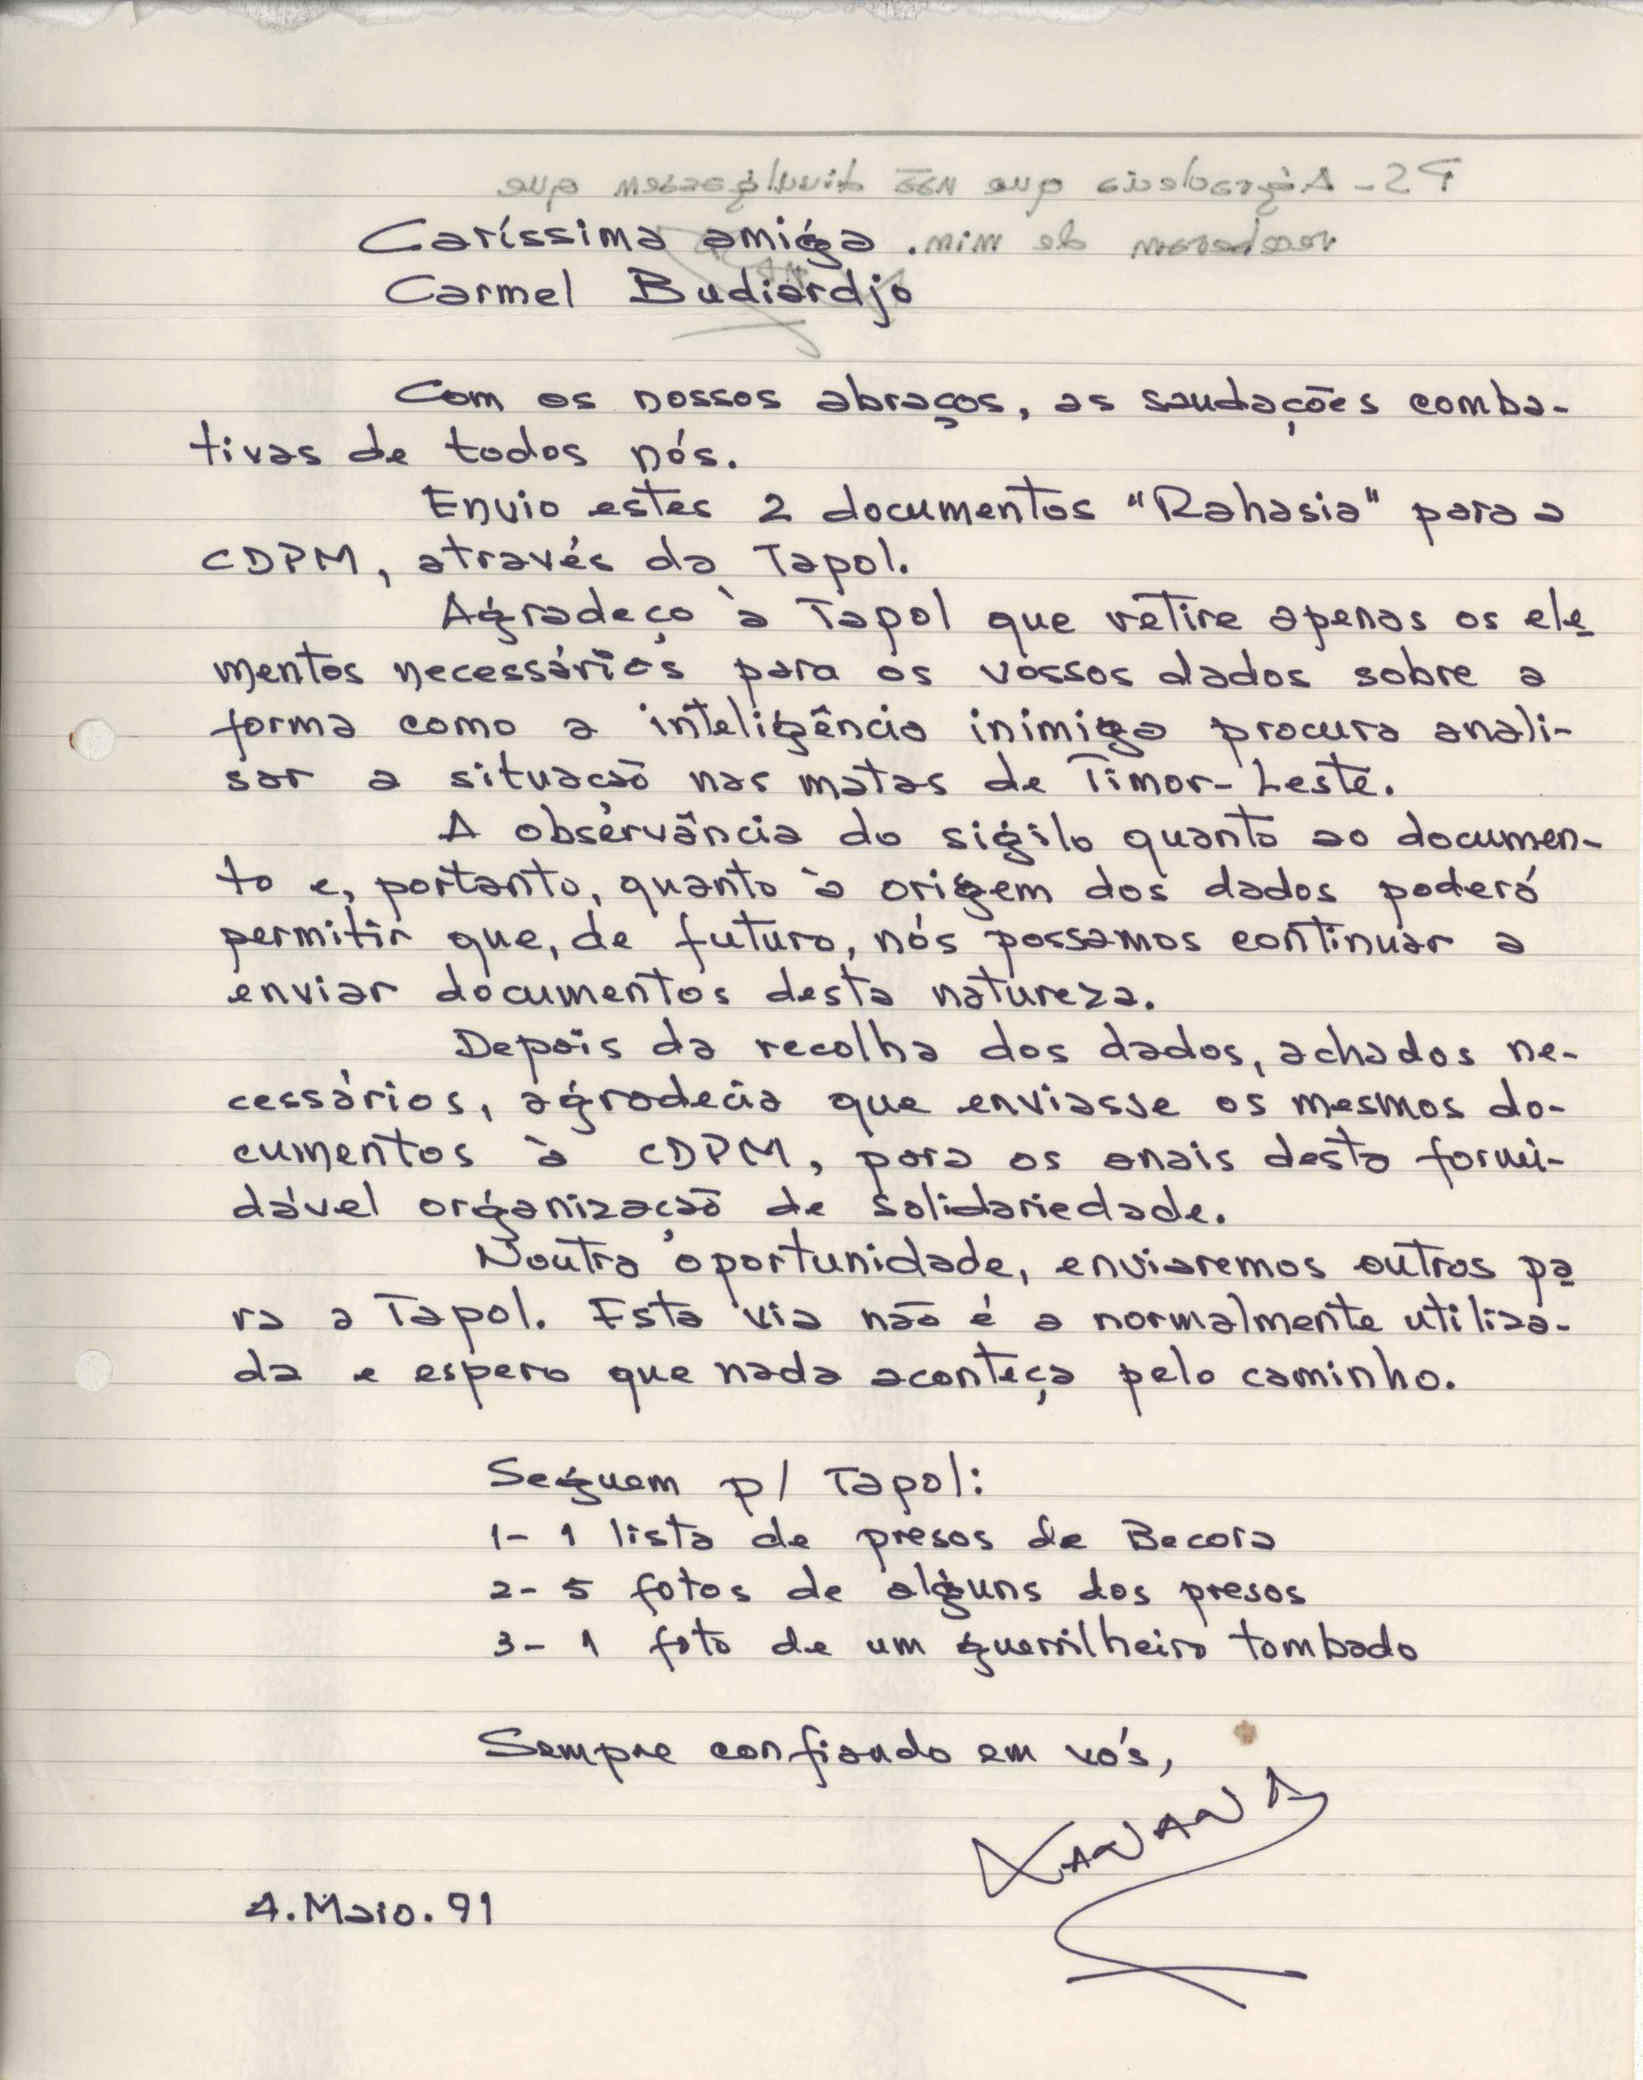 PS - Agradecia que não divulgassem que
receberam de mim.
Caríssima amiga
Carmel Budiardjo
Com os nossos abraços, as saudações comba-
tivas de todos nós.
Envio estes 2 documentos "Rahasia" para a
CDPM, através da Tapol.
Agradeço à Tapol que retire apenas os ele
mentos necessários para os vossos dados sobre a
forma como a inteligência inimiga procura anali-
sar a situação nas matas de Timor-Leste.
A observância do sigilo quanto ao documen-
to e, portanto, quanto à origem dos dados poderá
permitir que, de futuro, nós possamos continuar a
enviar documentos desta natureza.
Depois da recolha dos dados, achados ne-
cessários, agradecia que enviasse os mesmos do-
cumentos à CDPM, para os anais desta formi-
dável organização de solidariedade.
Noutra oportunidade, enviaremos outros pa
ra a Tapol. Esta via não é a normalmente utiliza-
da e espero que nada aconteça pelo caminho.
Seguem p/ Tapol:
1- 1 lista de presos de Becora
2- 5 fotos de alguns dos presos
3- 1 foto de um guerrilheiro tombado
Sempre confiando em vós,
XANANA
4.Maio.91